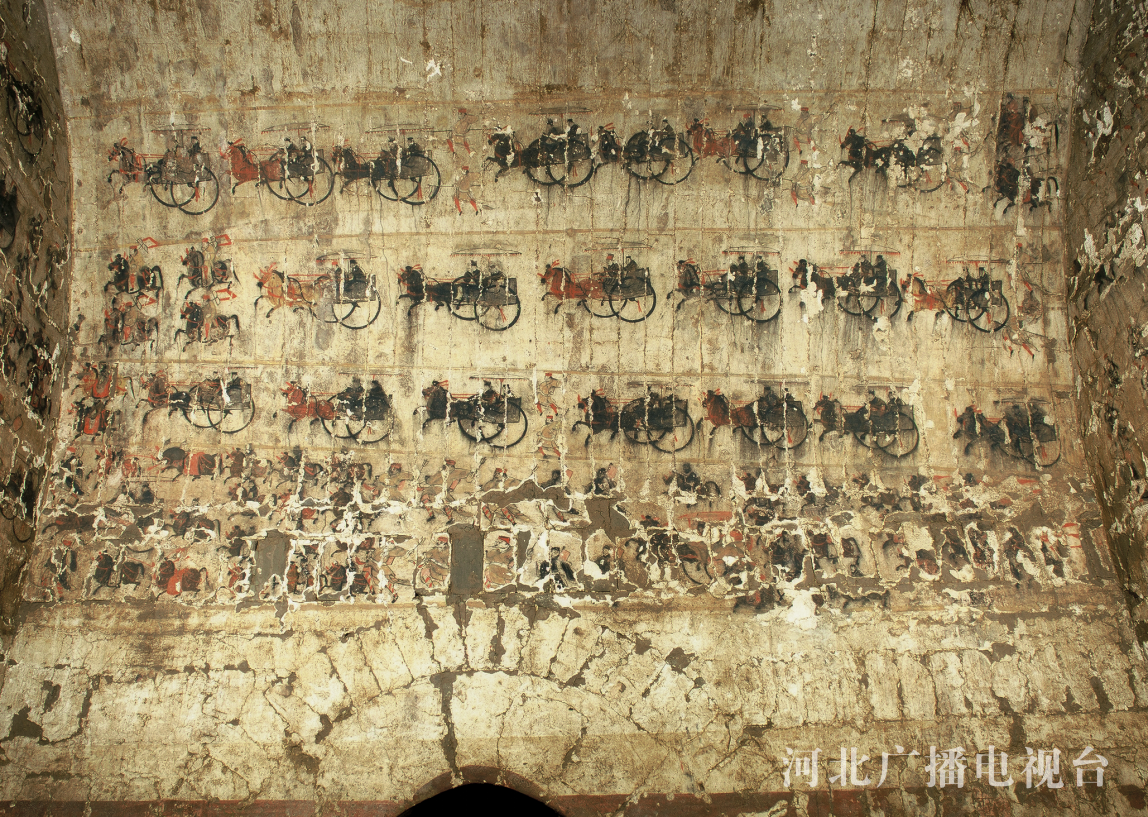 河北广播电视台